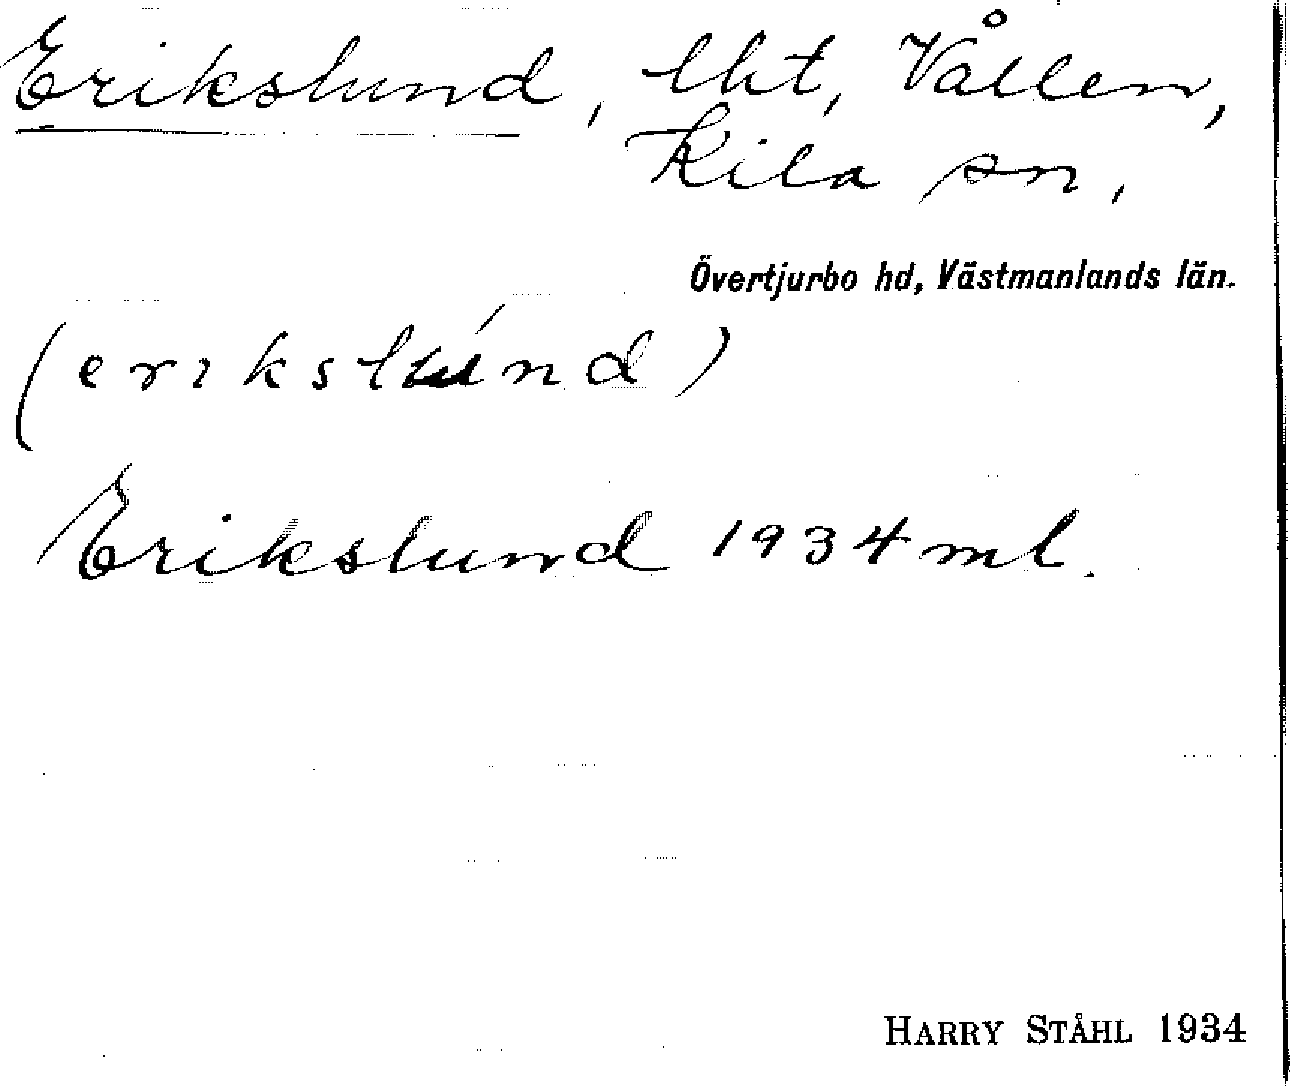 Erikslund, lht, Vållen,
Kila sn,
Övertjurbo hd, Västmanlands län.
(erikslúnd)
Erikslund 1934 ml.
HARRY STÅHL 1934